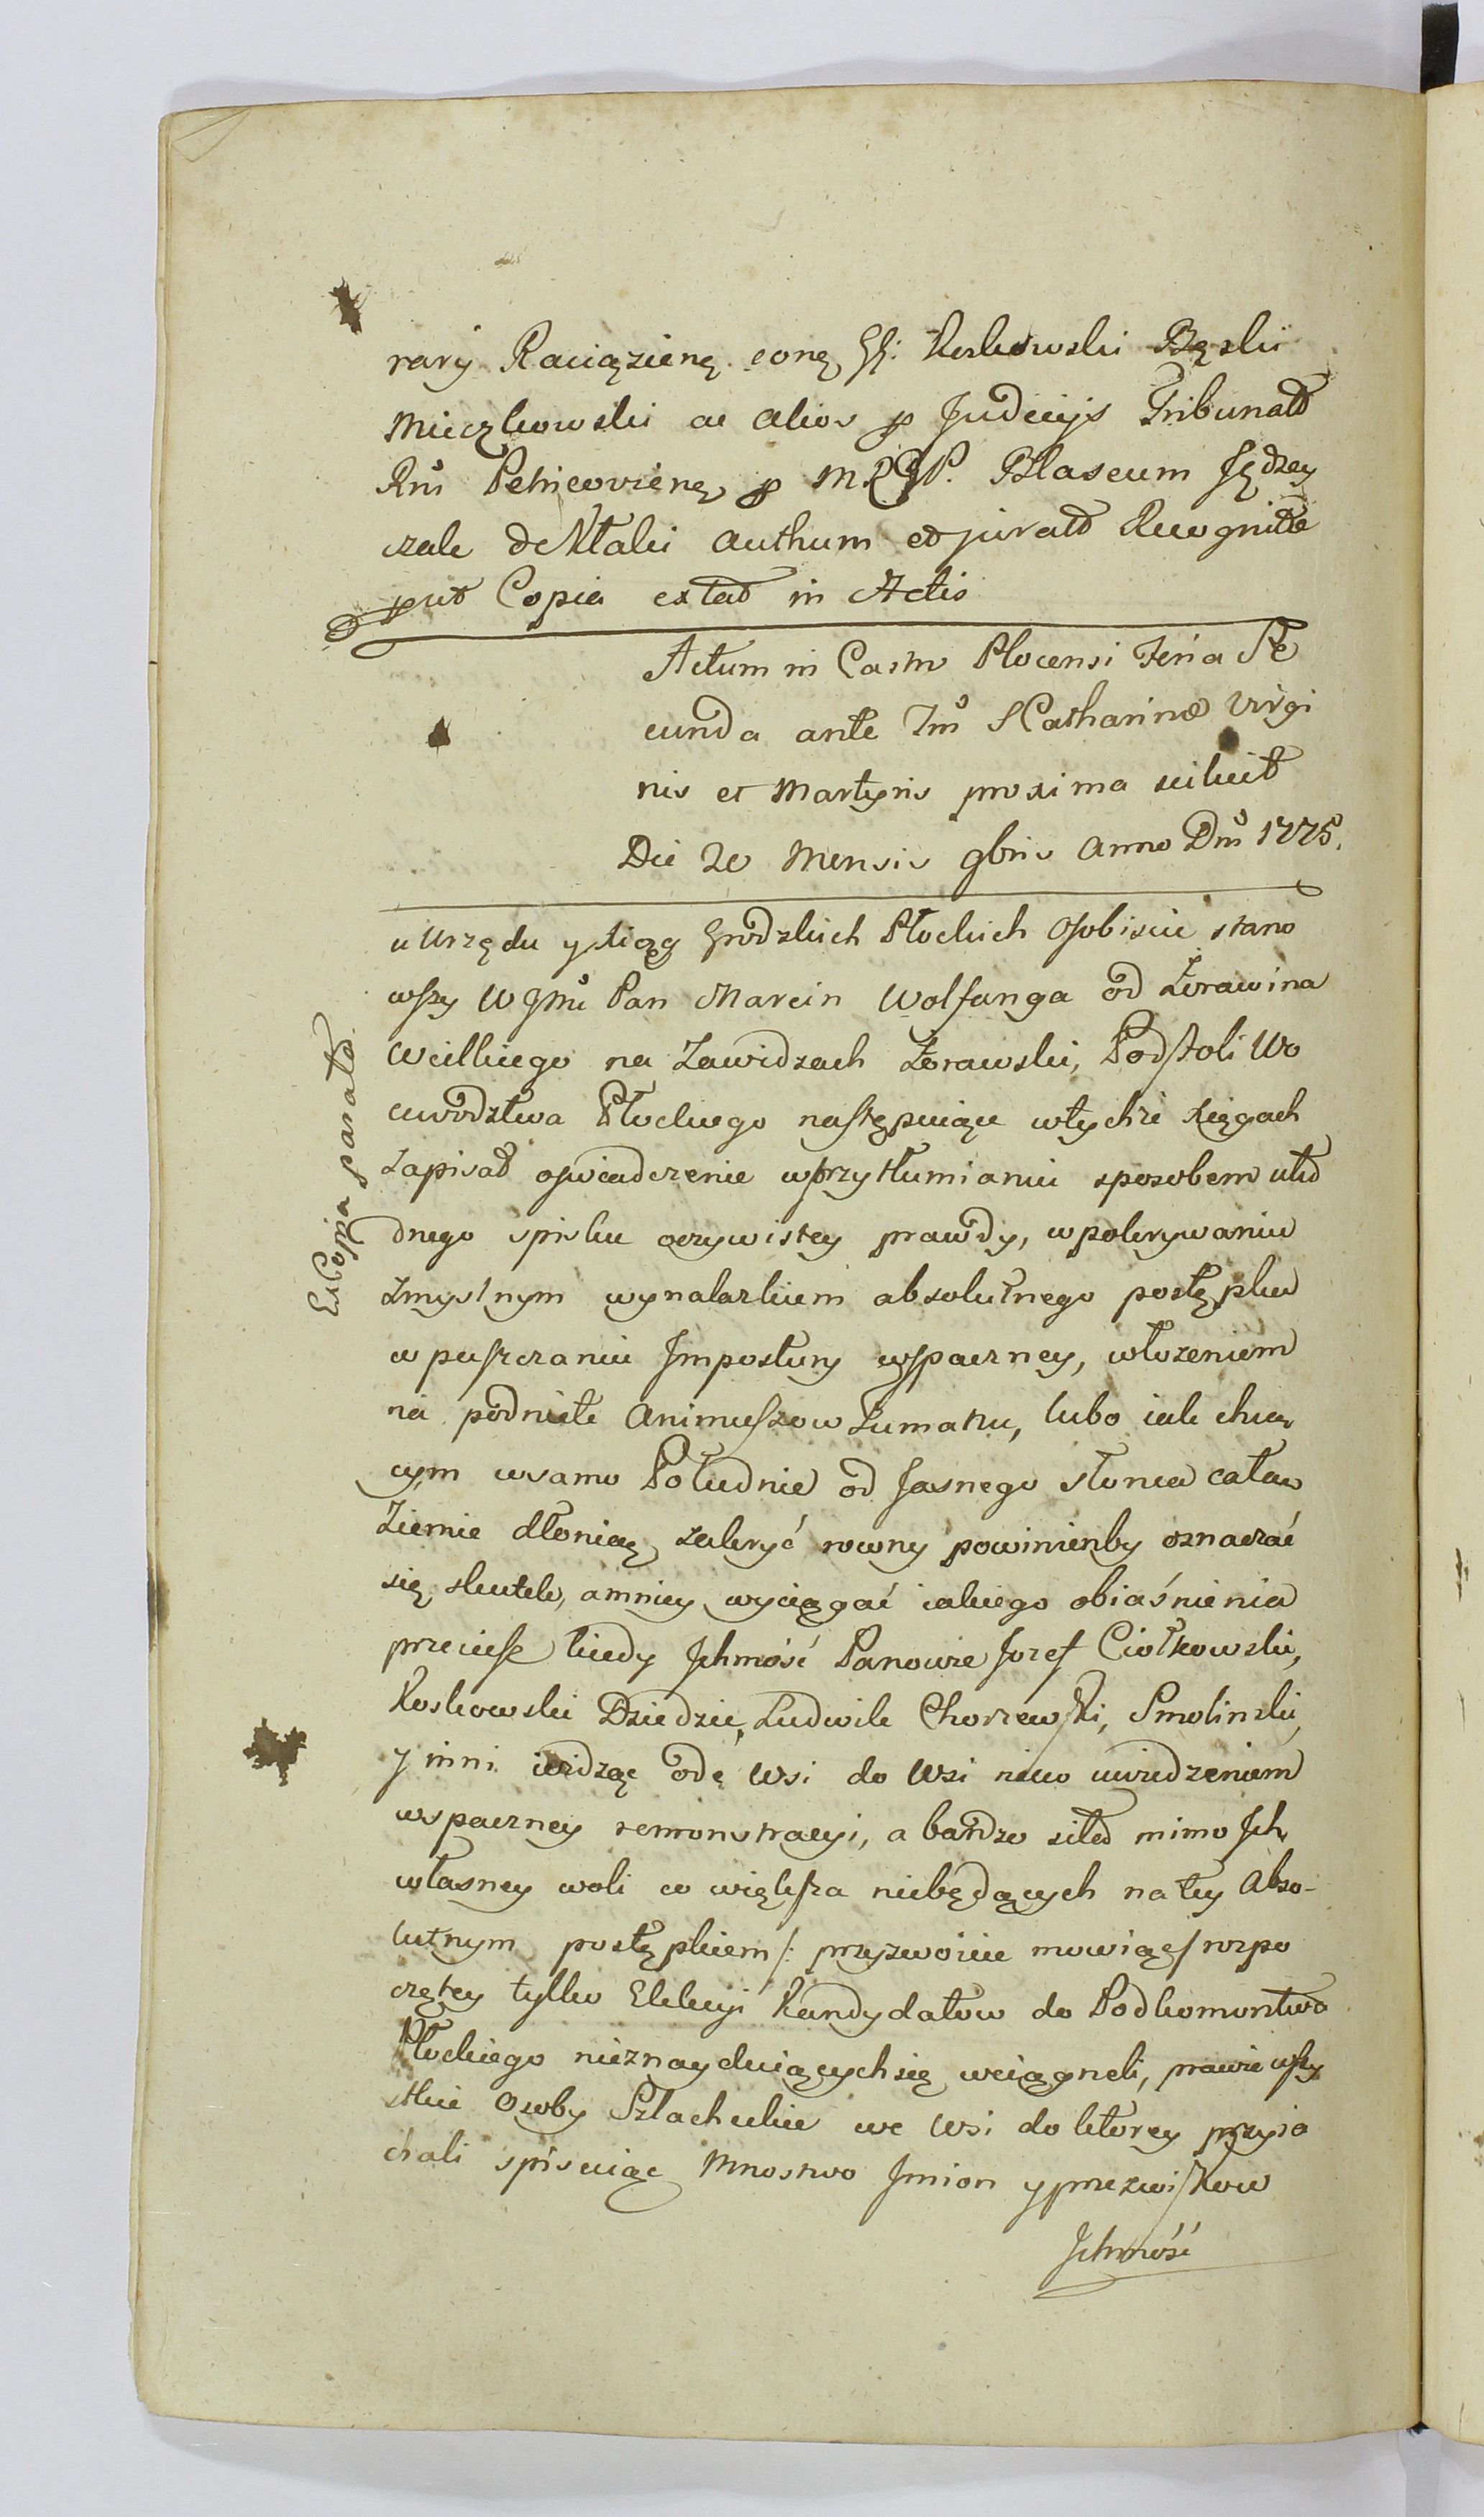 rary Raciązienę. conę Gł: Koskowski Bęski
Mieczkowski ac alios p Judicijs Tribunald
Petricovienę p Blaseum Jędrzey
czak authum ed jurald Recognitte
prut Copia extad in Actis
Actum in Castro Plocensi Feria Se
cunda ante Sm̃ S Catharinæ Virgi
nis et Martyris proxima scilicet
Die 20 Mensis 9bris Anno Dm̃ 1775.
u Urzędu y Xiąg Grodzkich Płockich Osobiscie stano
wszy WJM̃ Pan Marcin Wolfanga od Żorawina
Wielkiego na Zawidzach Żorawski, Podstoli Wo
iewodztwa Płockiego następuiące wtychże Xięgach
Zapisał oswiadczenie wprzytłumianiu sposobem
dnego spisku oczywistey prawdy, wpokrywaniu
Zmyslnym wynalazkiem absolutnego postępku
w puszczaniu Jmpostury wspaczney, włozeniem
na podniete Animuszow Tumanu, lubo iak chcą
cym wsamo Południe od Jasnego słonca całą
Ziemie dłonią zakryć rowny powinienby oznaczać
się skutek, amniey wyciągać iakiego obiaśnienia
przeciesz kiedy Jchmość Panowie Jozef Ciołkowski,
Koskowski Dziedzic, Ludwik Chorzewski, Smolinski,
y inni ieżdżąc ode wsi do wsi uwiedzeniem
wspaczney remonstracyi, a bardzo siła mimo Jch
własney woli co więkſza niebędących na tey Abso-
lutnym postępkiem /: przyzwoicie mowiąc/ rozpo
czętey tylko Elekcyi Kandydatow do Podkomorstwa
Płockiego nieznayduiących się wciągneli, prawie wszy
stkie Osoby Szlacheckie we wsi do ktorey przyia
chali spisuiąc Mnostwo Jmion y przezwiskow
Jchmość
Ex Copia parata